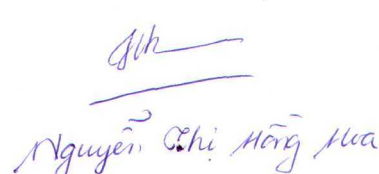 Nguyễn Thị Hồng Hoa